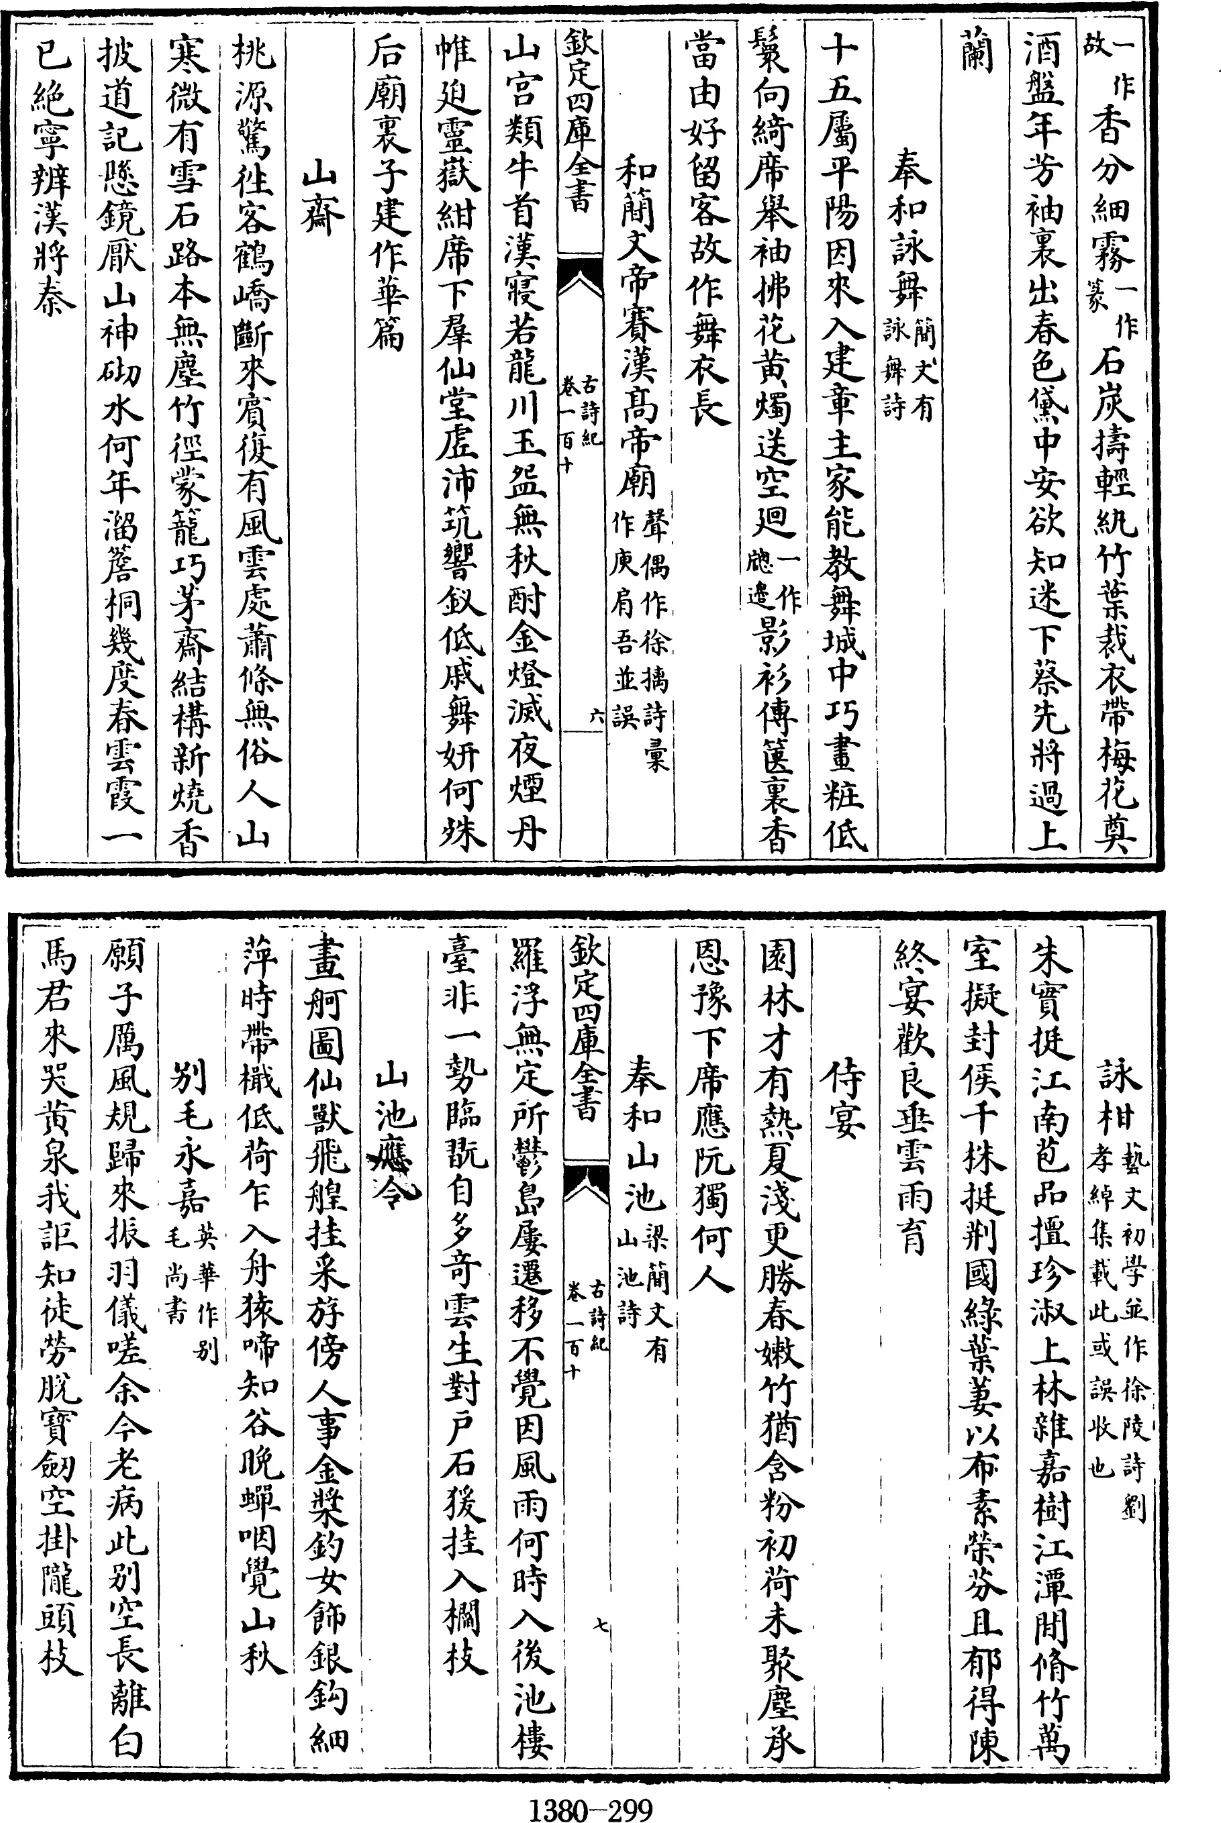 一作故香分細霧一作篆石炭擣輕紈竹葉裁衣帶梅花奠
酒盤年芳袖裏出春色黛中安欲知迷下蔡先將過上
蘭
奉和詠舞簡文有詠舞詩
十五屬平陽因來入建章主家能教舞城中巧畫粧低
鬟向綺席舉袖拂花黃燭送空廻一作牕邊影衫傳篋裏香
當由好留客故作舞衣長
和簡文帝賽漢髙帝廟聲偶作徐摛詩彚作庾肩吾並誤
欽定四庫全書
古詩紀
卷一百十
六
山宫類牛首漢寢若龍川玉盌無秋酎金燈滅夜煙丹
帷廹靈嶽紺席下羣仙堂虚沛筑響釵低戚舞妍何殊
后廟裏子建作華篇
山齋
桃源驚徃客鶴嶠斷來賓復有風雲處蕭條無俗人山
寒微有雪石路本無塵竹徑蒙籠巧茅齋結構新燒香
披道記懸鏡厭山神砌水何年溜簷桐幾度春雲霞一
已絶寧辨漢將秦
詠柑藝文初學並作徐陵詩劉孝綽集載此或誤收也
朱實挺江南苞品擅珍淑上林雜嘉樹江潭間脩竹萬
室擬封侯千株挺荆國綠葉萋以布素榮芬且郁得陳
終宴歡良垂雲雨育
侍宴
園林才有熱夏淺更勝春嫩竹猶含粉初荷未聚塵承
恩豫下席應阮獨何人
奉和山池梁簡文有山池詩
欽定四庫全書
古詩紀
卷一百十
七
羅浮無定所鬱島屢遷移不覺因風雨何時入後池樓
臺非一勢臨翫自多奇雲生對户石猨挂入欄枝
山池應令
畫舸圖仙獸飛艎挂采斿傍人事金槳釣女飾銀鈎細
萍時帶檝低荷乍入舟猿啼知谷晚蟬咽覺山秋
别毛永嘉英華作别毛尚書
願子厲風規歸來振羽儀嗟余今老病此别空長離白
馬君來哭黄泉我詎知徒勞脫寳劒空掛隴頭枝
1380-299